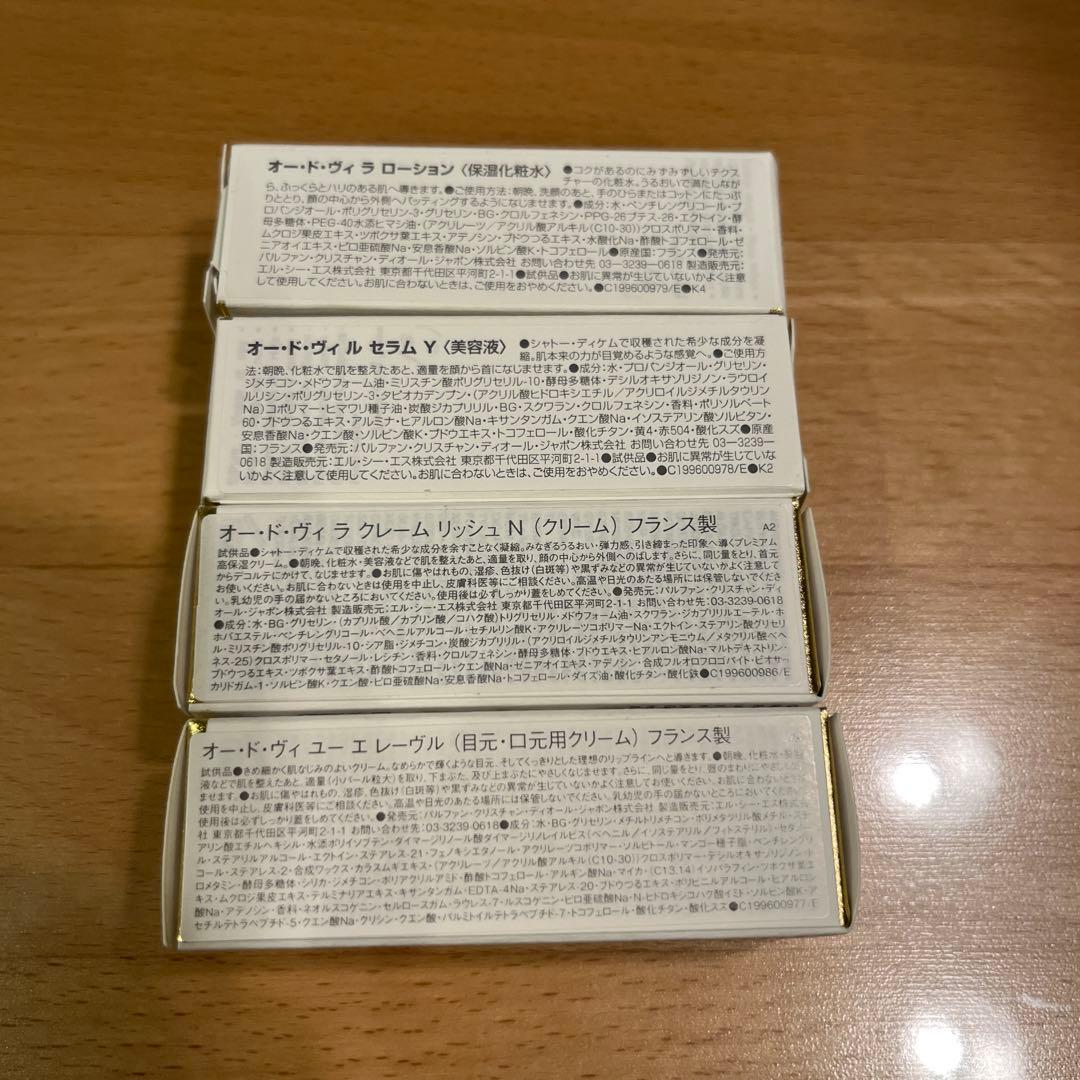 オー・ド・ヴィ ラ ローション〈保湿化粧水〉 ●コクがあるのにみずみずしいテクス
チャーの化粧水。うるおいで満たしなが
ら、ふっくらとハリのある肌へ導きます。●ご使用方法：朝晩、洗顔のあと、手のひらまたはコットンにたっぷ
りととり、顔の中心から外側へパッティングするようになじませます。●成分：水・ペンチレングリコール・プ
ロパンジオール・ポリグリセリン-3・グリセリン・BG・クロルフェネシン・PPG-26ブテス-26・エクトイン・酵
母多糖体・PEG-40水添ヒマシ油・（アクリレーツ／アクリル酸アルキル(C10-30)）クロスポリマー・香料・
ムクロジ果皮エキス・ツボクサ葉エキス・アデノシン・ブドウつるエキス・水酸化Na・酢酸トコフェロール・ゼ
ニアオイエキス・ピロ亜硫酸Na・安息香酸Na・ソルビン酸K・トコフェロール●原産国：フランス●発売元：
パルファン・クリスチャン・ディオール・ジャポン株式会社 お問い合わせ先 03-3239-0618 製造販売元：
エル・シー・エス株式会社 東京都千代田区平河町2-1-1●試供品●お肌に異常が生じていないかよく注意
して使用してください。お肌に合わないときは、ご使用をおやめください。●C199600979/E●K4
オー・ド・ヴィ ル セラム Y〈美容液〉 ●シャトー・ディケムで収穫された希少な成分を凝
縮。肌本来の力が目覚めるような感覚へ。●ご使用方
法：朝晩、化粧水で肌を整えたあと、適量を顔から首になじませます。●成分：水・プロパンジオール・グリセリン・
ジメチコン・メドウフォーム油・ミリスチン酸ポリグリセリル-10・酵母多糖体・デシルオキサゾリジノン・ラウロイ
ルリシン・ポリグリセリン-3・タピオカデンプン・（アクリル酸ヒドロキシエチル／アクリロイルジメチルタウリン
Na）コポリマー・ヒマワリ種子油・炭酸ジカプリリル・BG・スクワラン・クロルフェネシン・香料・ポリソルベート
60・ブドウつるエキス・アルミナ・ヒアルロン酸Na・キサンタンガム・クエン酸Na・イソステアリン酸ソルビタン・
安息香酸Na・クエン酸・ソルビン酸K・ブドウエキス・トコフェロール・酸化チタン・黄4・赤504・酸化スズ●原産
国：フランス●発売元：パルファン・クリスチャン・ディオール・ジャポン株式会社 お問い合わせ先 03-3239-
0618 製造販売元：エル・シー・エス株式会社 東京都千代田区平河町2-1-1●試供品●お肌に異常が生じていな
いかよく注意して使用してください。お肌に合わないときは、ご使用をおやめください。●C199600978/E●K2
オー・ド・ヴィ ラ クレーム リッシュ N（クリーム）フランス製 A2
試供品●シャトー・ディケムで収穫された希少な成分を余すことなく凝縮。みなぎるうるおい・弾力感、引き締まった印象へ導くプレミアム
高保湿クリーム。●朝晩、化粧水・美容液などで肌を整えたあと、適量を取り、顔の中心から外側へのばします。さらに、同じ量をとり、首元
からデコルテにかけて、なじませます。●お肌に傷やはれもの、湿疹、色抜け（白斑等）や黒ずみなどの異常が生じていないかよく注意して
お使いください。お肌に合わないときは使用を中止し、皮膚科医等にご相談ください。高温や日光のあたる場所には保管しないでくださ
い。乳幼児の手の届かないところにおいてください。使用後は必ずしっかり蓋をしめてください。●発売元：パルファン・クリスチャン・ディ
オール・ジャポン株式会社 製造販売元：エル・シー・エス株式会社 東京都千代田区平河町2-1-1 お問い合わせ先：03-3239-0618
●成分：水・BG・グリセリン・（カプリル酸／カプリン酸／コハク酸）トリグリセリル・メドウフォーム油・スクワラン・ジカプリリルエーテル・ホ
ホバエステル・ペンチレングリコール・ベヘニルアルコール・セチルリン酸K・アクリレーツコポリマーNa・エクトイン・ステアリン酸グリセリ
ル・ミリスチン酸ポリグリセリル-10・シア脂・ジメチコン・炭酸ジカプリリル・（アクリロイルジメチルタウリンアンモニウム／メタクリル酸ベヘ
ネス-25）クロスポリマー・セタノール・レシチン・香料・クロルフェネシン・酵母多糖体・ブドウエキス・ヒアルロン酸Na・マルトデキストリン・
ブドウつるエキス・ツボクサ葉エキス・酢酸トコフェロール・クエン酸Na・ゼニアオイエキス・アデノシン・合成フルオロフロゴパイト・ビオサッ
カリドガム-1・ソルビン酸K・クエン酸・ピロ亜硫酸Na・安息香酸Na・トコフェロール・ダイズ油・酸化チタン・酸化鉄●C199600986/E
オー・ド・ヴィ ユー エ レーヴル（目元・口元用クリーム）フランス製
試供品●きめ細かく肌なじみのよいクリーム。なめらかで輝くような目元、そしてくっきりとした理想のリップラインへと導きます。●朝晩、化粧水・美容
液などで肌を整えたあと、適量（小パール粒大）を取り、下まぶた、及び上まぶたにやさしくなじませます。さらに、同じ量をとり、唇のまわりにやさしくなじ
ませます。●お肌に傷やはれもの、湿疹、色抜け（白斑等）や黒ずみなどの異常が生じていないかよく注意してお使いください。お肌に合わないときは
使用を中止し、皮膚科医等にご相談ください。高温や日光のあたる場所には保管しないでください。乳幼児の手の届かないところにおいてください。
使用後は必ずしっかり蓋をしめてください。●発売元：パルファン・クリスチャン・ディオール・ジャポン株式会社 製造販売元：エル・シー・エス株式会
社 東京都千代田区平河町2-1-1 お問い合わせ先：03-3239-0618●成分：水・BG・グリセリン・メチルトリメチコン・ポリメタクリル酸メチル・ステ
アリン酸エチルヘキシル・水添ポリイソブテン・ダイマージリノール酸ダイマージリノレイルビス（ベヘニル／イソステアリル／フィトステリル）・セタノール
・ステアリルアルコール・エクトイン・ステアレス-21・フェノキシエタノール・アクリレーツコポリマー・ソルビトール・マンゴー種子脂・ペンチレングリ
コール・ステアレス-2・合成ワックス・カラスムギエキス・（アクリレーツ／アクリル酸アルキル(C10-30)）クロスポリマー・デシルオキサゾリジノン・ト
ロメタミン・酵母多糖体・シリカ・ジメチコン・ポリアクリルアミド・酢酸トコフェロール・アルギン酸Na・マイカ・(C13,14)イソパラフィン・ツボクサ葉エ
キス・ムクロジ果皮エキス・テルミナリアエキス・キサンタンガム・EDTA-4Na・ステアレス-20・ブドウつるエキス・ポリビニルアルコール・ヒアルロン
酸Na・アデノシン・香料・ネオルスコゲニン・セルロースガム・ラウレス-7・ルスコゲニン・ピロ亜硫酸Na・N-ヒドロキシコハク酸イミド・ソルビン酸K・ア
セチルテトラペプチド-5・クエン酸Na・クリシン・クエン酸・パルミトイルテトラペプチド-7・トコフェロール・酸化チタン・酸化スズ●C199600977/E